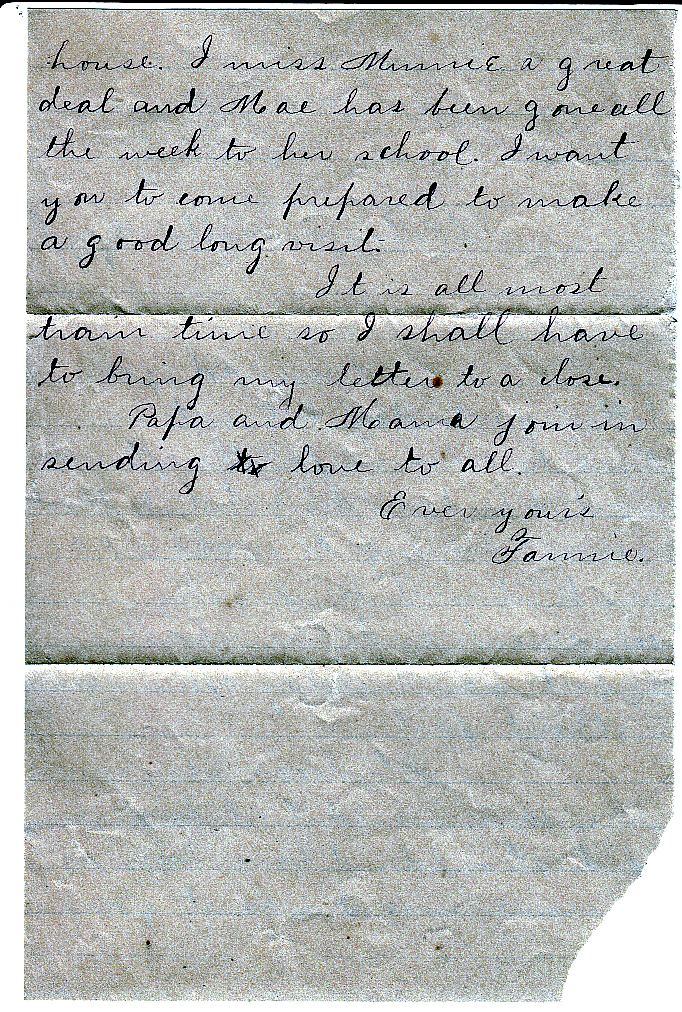 house. I miss Minnie a great
deal and Mae has been gone all
the week to her school. I want
you to come prepared to make
a good long visit.
It is all most
train time so I shall have
to bring my letter to a close.
Papa and Mama join in
sending love to all.
Ever yours
Fannie.